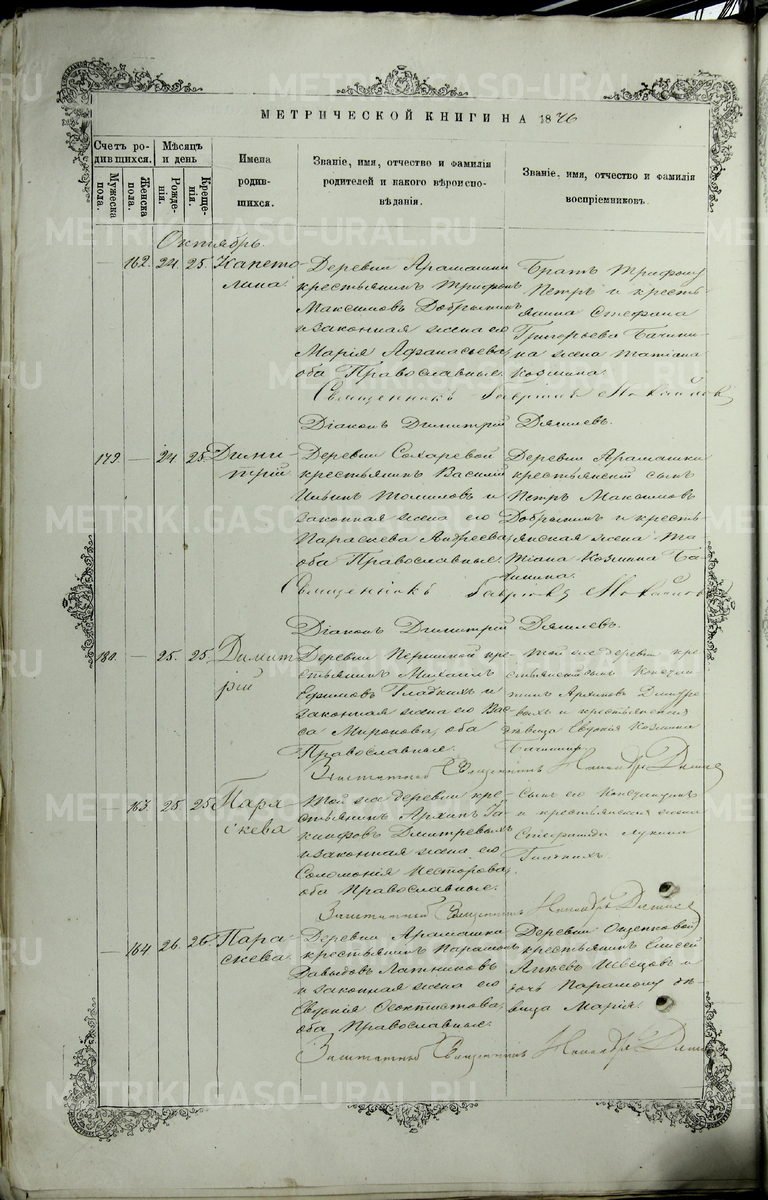 МЕТРИЧЕСКОЙ КНИГИ НА 1876
Счетъ родившихся.
Мужеска пола.
Женска пола.
Мѣсяцъ и день
Рожденiя.
Крещенiя.
Имена родившихся.
Званiе, имя, отчество и фамилiя родителей и какого вѣроисповѣданiя.
Званiе, имя, отчество и фамилiя воспрiемниковъ.
Октябрь.
— 162. 24. 25. Капетолина
Деревни Арамашки
крестьянинъ Трифонъ
Максимовъ Добрынинъ
и законная жена его
Марiя Афанасьева,
оба Православные.
Братъ Трифону
Петръ и кресть
янина Стефана
Григорьева
жена Татiана
Козмина.
Священникъ Гаврiилъ
Дiаконъ Димитрiй
179 — 24 25 Димитрiй
Деревни Сохаревой
крестьянинъ Василiй
Ильинъ Томиловъ и
законная жена его
Параскева Андреева,
оба Православные.
Деревни Арамашки
крестьянскiй сынъ
Петръ Максимовъ
Добрынинъ и кресть
янская жена Та
тiана Козмина
Священникъ Гаврiилъ
Дiаконъ Димитрiй
180 — 25. 25. Димитрiй
Деревни Першиной кре
стьянинъ Михаилъ
Ефимовъ Гладкихъ и
законная жена его Вас
са Миронова, оба
Православные.
Той же деревни кре
стьянскiй сынъ
Архиповъ Дмитре
выхъ и крестьянская
дѣвица Евдокiя Козмина
Заштатный Священникъ Никандръ
— 163. 25. 25. Параскева
Той же деревни кре
стьянинъ Архипъ Iа
кинфовъ Дмитревыхъ
и законная жена его
Соломонiя Несторова,
оба Православные.
Сынъ его
и крестьянская жена
Лукина
Заштатный Священникъ Никандръ
— 164 26. 26. Параскева
Деревни Арамашка
крестьянинъ Парамонъ
Давыдовъ Латниковъ
и законная жена его
Евдокiя Феоктистова,
оба Православные.
Деревни Ощепковой
крестьянинъ Елисей
Швецовъ и
дочь Парамону дѣ
вица Марiя.
Заштатный Священникъ Никандръ
METRIKI.GASO-URAL.RU